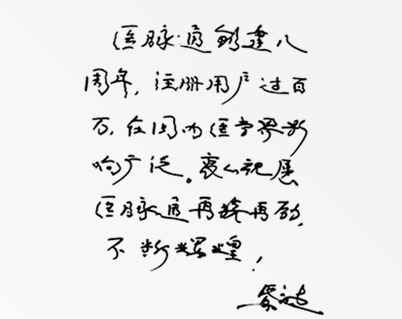 医脉通创建八
周年,注册用户过百
万,在国内医学界影
响广泛。衷心祝愿
医脉通再接再励,
不断辉煌!